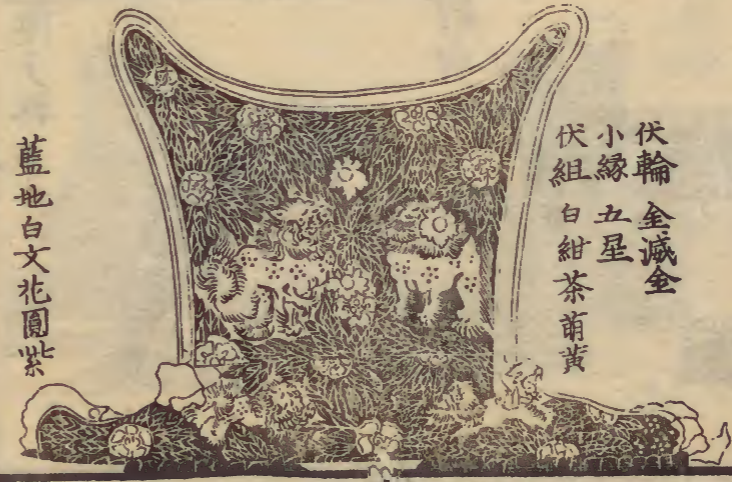 伏輪 金滅金
小縁 五星
伏組 白紺茶萌黄
藍地白文花圓紫